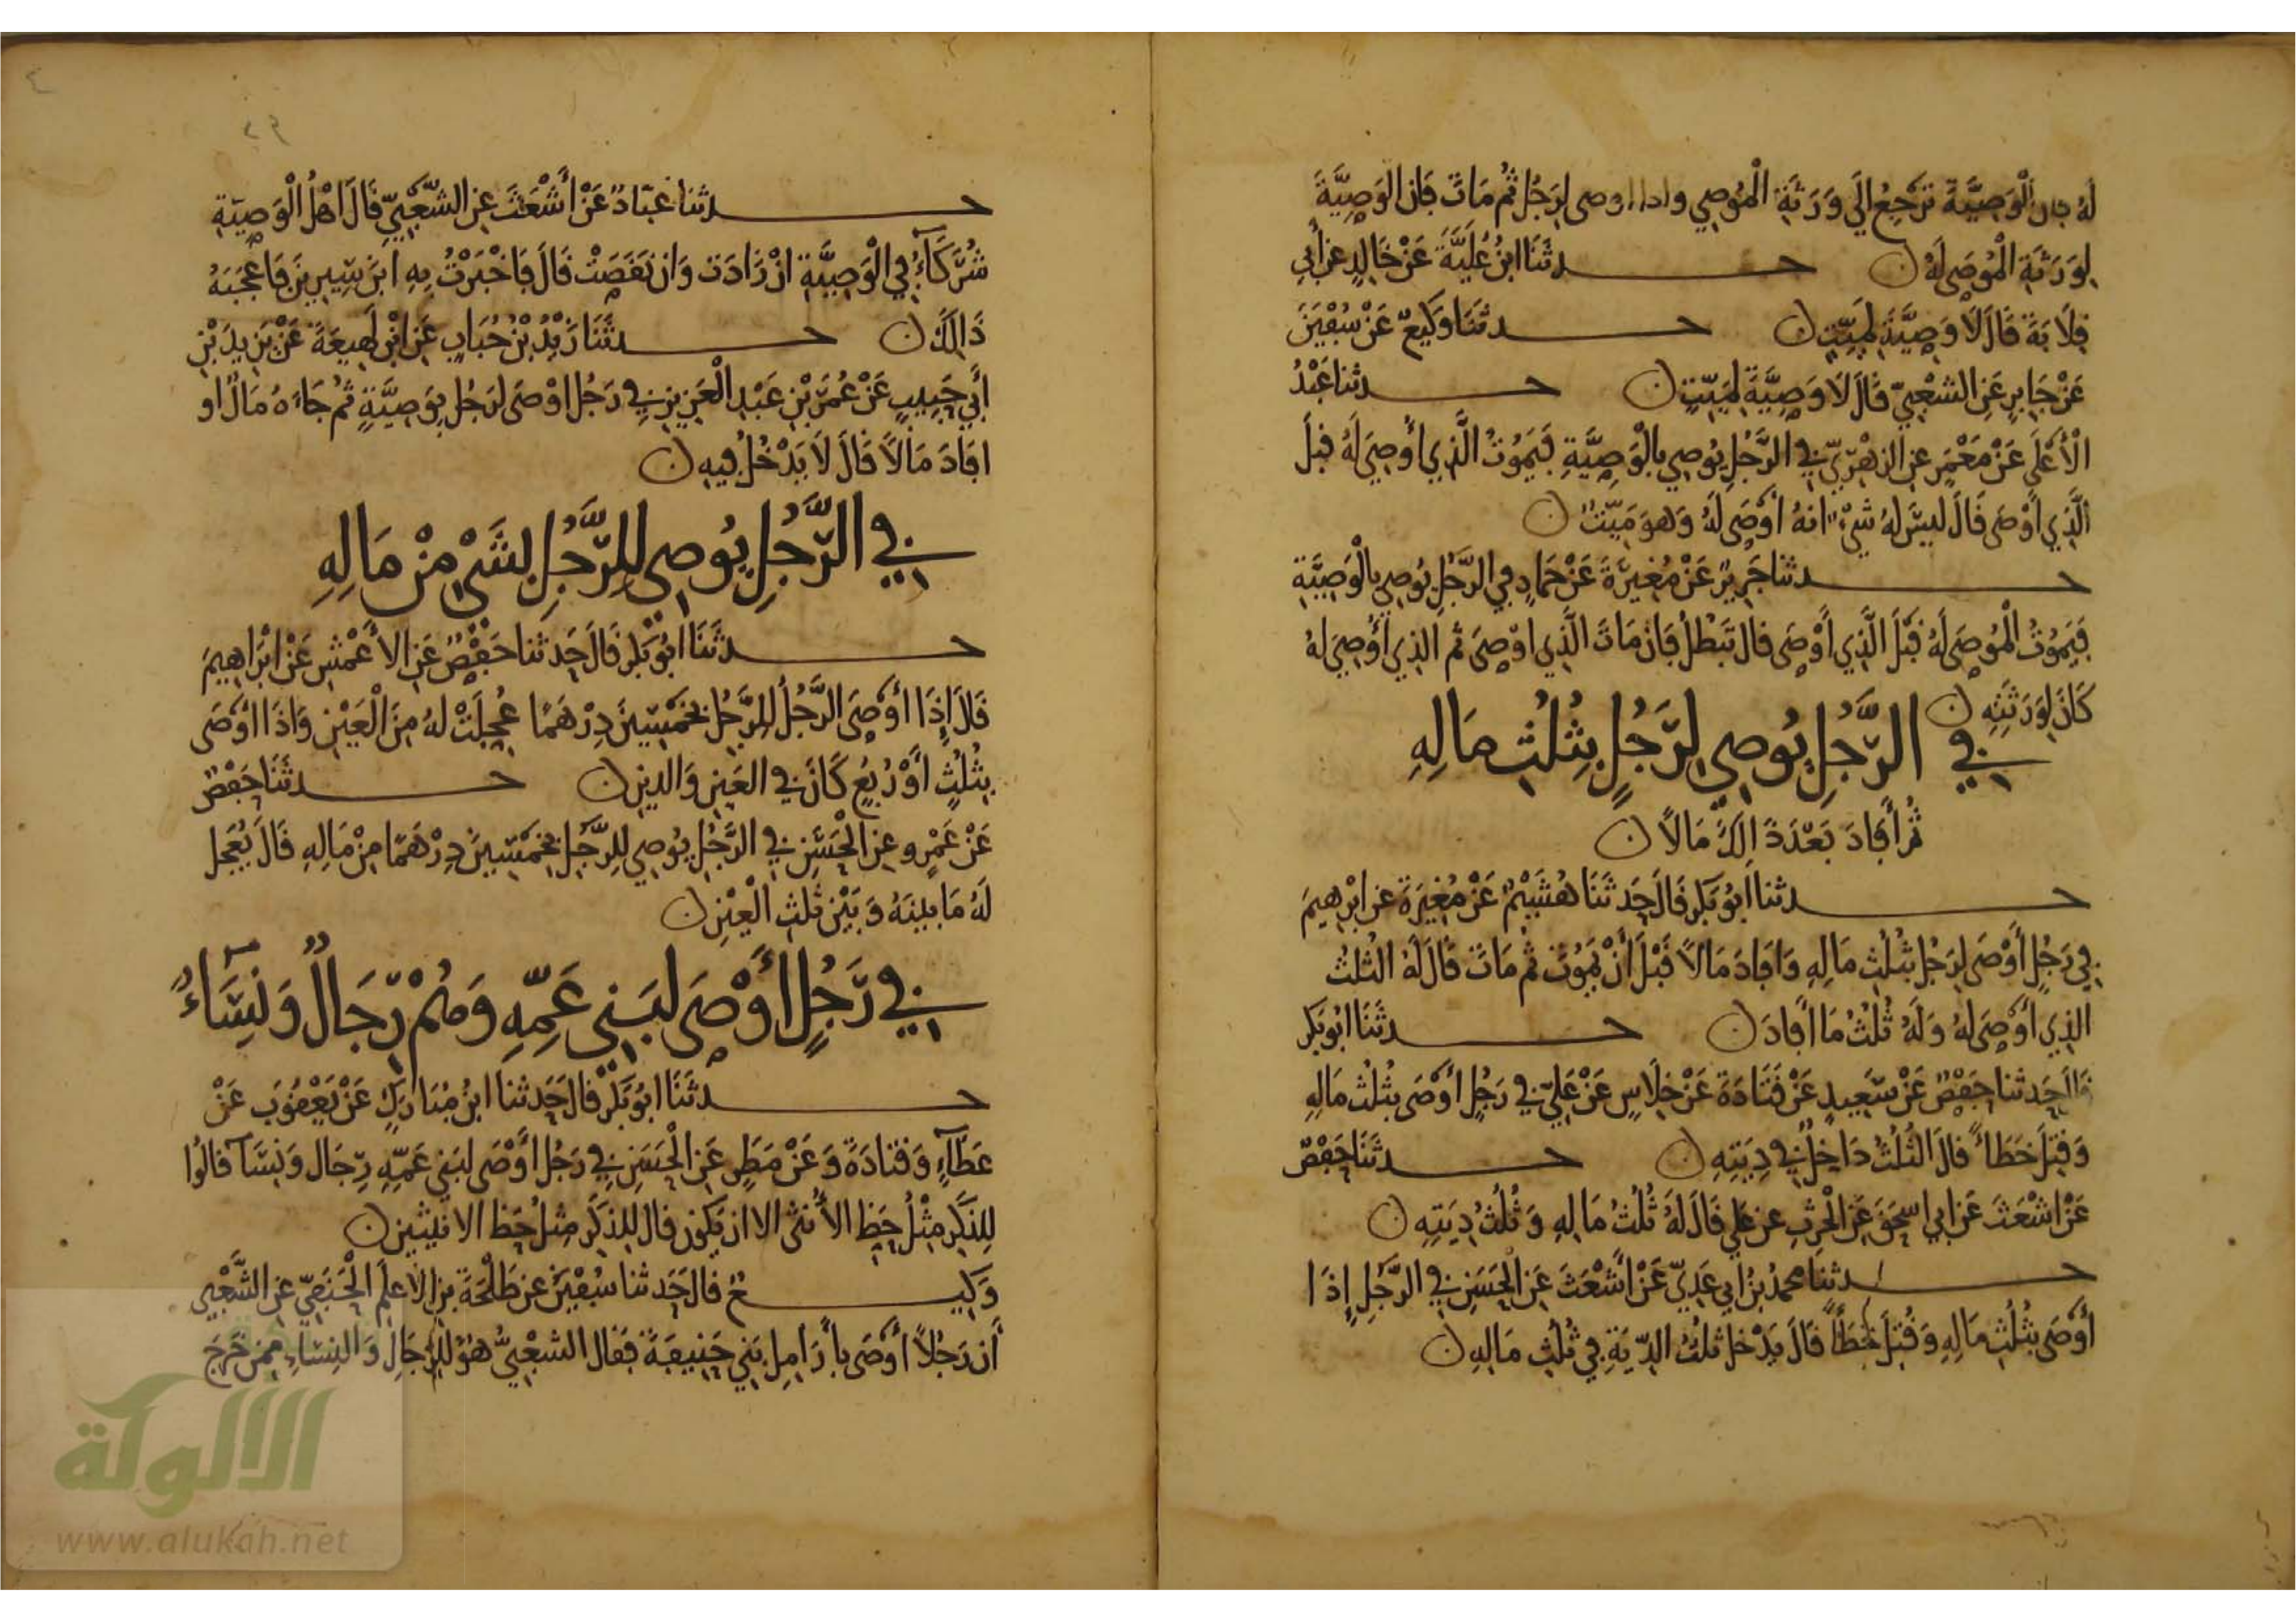 لَهُ فان الْوَصِيَّةَ تَرْجِعُ اِلَى وَرَثَةِ الْمُوصِي واذا اوصى لِرَجُلٍ ثُمَّ مَاتَ فَاِن الوَصِيَّةَ
لِوَرَثَةِ الْمُوصَى لَهُ ن حـــدثَنَا ابنُ عُلَيَّةَ عَنْ خَالِدٍ عَن أبي
قِلَابَةَ قَالَ لَا وَصِيَّةَ لِمَيِّتٍ ن حـــدثَنَا وَكِيعٌ عَنْ سُفْيَنَ
عَنْ جَابِرٍ عَنِ الشَعْبِيّ قَالَ لَا وَصِيَّةَ لِمَيّتٍ ن حـــدثنا عَبْدُ
الْأَعْلَى عَنْ مَعْمَرٍ عنِ الزهْرِيّ فِي الرَّجُلِ يُوصِي بِالْوَصِيَّةِ فَيَمُوتُ الَّذِي أُوصِيَ لَهُ قبْلَ
الَّذِي أَوْصَى قَالَ ليسَ لهُ شَيْءٌ انهُ أَوْصَى لَهُ وَهوَ مَيّتٌ ن
حـــدثنا جَرِيرٌ عَنْ مُغِيرَةَ عَنْ حَمادٍ فِي الرَّجُلِ يُوصِي بِالْوَصِيَّةِ
فَيَمُوتُ الْمُوصَى لَهُ قَبْلَ الَّذِي أَوْصَى قال تَبْطُلُ فَاِن مَاتَ الَّذِي اوْصَى ثم الذِي أُوصِيَ لهُ
كَانَ لِوَرَثَتِهِ ن
فِي الرَّجُلِ يُوصِي لِرَجُلٍ بِثُلُثِ مَالِهِ
ثُمَّ أَفَادَ بَعْدَ ذَالِكَ مَالاً ن
حـــدثنا ابُو بَكْرٍ قَالَ حَدثَنَا هُشَيْمٌ عَنْ مُغِيَرَةَ عَنِ ابْرَهِيمَ
فِي رَجُلٍ أَوْصَى لِرَجُلٍ بثُلُثِ مَالِهِ وَافَادَ مَالاً قَبْلَ أَنْ يَمُوتَ ثم مَاتَ قَالَ لَهُ الثلثُ
الذِي أَوْصَى لهُ وَلَهُ ثُلُثُ مَا أَفادَ ن حـــدثَنَا ابُو بَكر
قال حَدثنا حَفْصٌ عَنْ سَعِيدٍ عَنْ قَتَادَةَ عَنْ خِلَاسٍ عَنْ عَلِيّ فِي رَجُلٍ أَوْصَى بِثُلُثِ مَالِهِ
وَقُتِلَ خَطَاءً قالَ الثُلُثُ دَاخِلٌ فِي دِيَتِهِ ن حـــدثَنَا حَفْصٌ
عَنْ اشْعَثَ عَن ابي اسحَقَ عَنِ الْحرِثِ عن علي قَالَ لَهُ ثُلُثُ مَالِهِ وَثُلُثُ دِيَتِهِ ن
حـــدثنا محمدُ بنُ ابي عَدِيّ عَنْ اشْعَثَ عَنِ الْحَسَنِ فِي الرَّجُلِ إِذَا
أَوْصَى بِثُلُثِ مَالِهِ وَقُتِلَ خَطَأً قَالَ يَدْخل ثلثُ الدِّيَةِ فِي ثُلُثِ مَالِهِ ن
٢٩
٤
حـــدثنا عَبّادٌ عَنْ أَشْعَثَ عنِ الشَّعْبِيّ قَالَ اهْلُ الْوَصِيّةِ
شُرَكَآءُ فِي الْوَصِيَّةِ انْ زَادَت وَان نَقَصَتْ قَالَ فَاخْبَرْتُ بِهِ ابنَ سِيرِينَ فَاعْجَبَهُ
ذَالِكَ ن حـــدثَنَا زَيْدُ بْنُ حُبَابٍ عَنِ ابْنِ لَهِيعَةَ عَنْ يَزِيدَ بْنِ
أَبِي حَبِيبٍ عَنْ عُمَرَ بْنِ عَبْدِ الْعَزِيزِ فِي رَجُلٍ اوْصَى لرَجُلٍ بِوَصِيَّةٍ ثم جَاءَهُ مَالٌ او
افَادَ مَالاً قَالَ لَا يَدْخُلُ فِيهِ ن
فِي الرَّجُلِ يُوصِي لِلرَّجُلِ بشَيْءٍ مِنْ مَالِهِ
حـــدثَنَا ابُو بَكر قَالَ حَدثنا حَفْصٌ عَنِ الاَعْمَشِ عَنْ ابْرَاهِيمَ
قَالَ إِذَا أَوْصَى الرَّجُلُ لِلرَّجُلِ بخَمْسِينَ دِرْهَمًا عُجِلَتْ لهُ مِنَ الْعَيْنِ وَاذَا أَوْصَى
بِثُلُثٍ أَوْ رُبُعٍ كَانَ فِي العَينِ وَالدينِ ن حـــدثَنَا حَفْصٌ
عَنْ عَمْرٍو عنِ الْحَسَنِ فِي الرَّجُلِ يُوصِي لِلرَّجُلِ بخَمْسِينَ دِرْهَمًا مِنْ مَالِهِ قَالَ يُعَجل
لَهُ مَا بينَهُ وَبَيْن ثُلثِ الْعَيْنِ ن
فِي رَجُلٍ أَوْصَى لبَنِي عَمِّهِ وَهُمْ رِّجَالٌ وَنِسَاءٌ
حـــدثَنَا ابُو بَكْرٍ قال حَدثنا ابنُ مُبَارَكٍ عَنْ يَعْقُوبَ عَنْ
عَطَآءٍ وَقتَادَةَ وَعَنْ مَطَرٍ عَنِ الْحَسَنِ فِي رَجُلٍ أَوْصَى لبَنِي عَمِّهِ رِجَال وَنِسَآء قالُوا
لِلذَكَرِ مِثْلُ حَظِ الأُنثى الا ان يَكُونَ قال للذكَرِ مِثلُ حَظ الانثيين ن
وَكِيـــعٌ قالَ حَدثنا سُفْيَنُ عن طَلْحَةَ بنِ الاعلَمِ الْحَنَفِيّ عنِ الشَّعْبِي
أَن رَجُلاً أَوْصَى بأَرَامِلِ بَنِي حَنِيفَةَ فقال الشعْبِيُّ هُوَ لِلرِّجَالِ وَالنِسَاءِ مِمَّنْ خَرَجَ
الألوكة
www.alukah.net